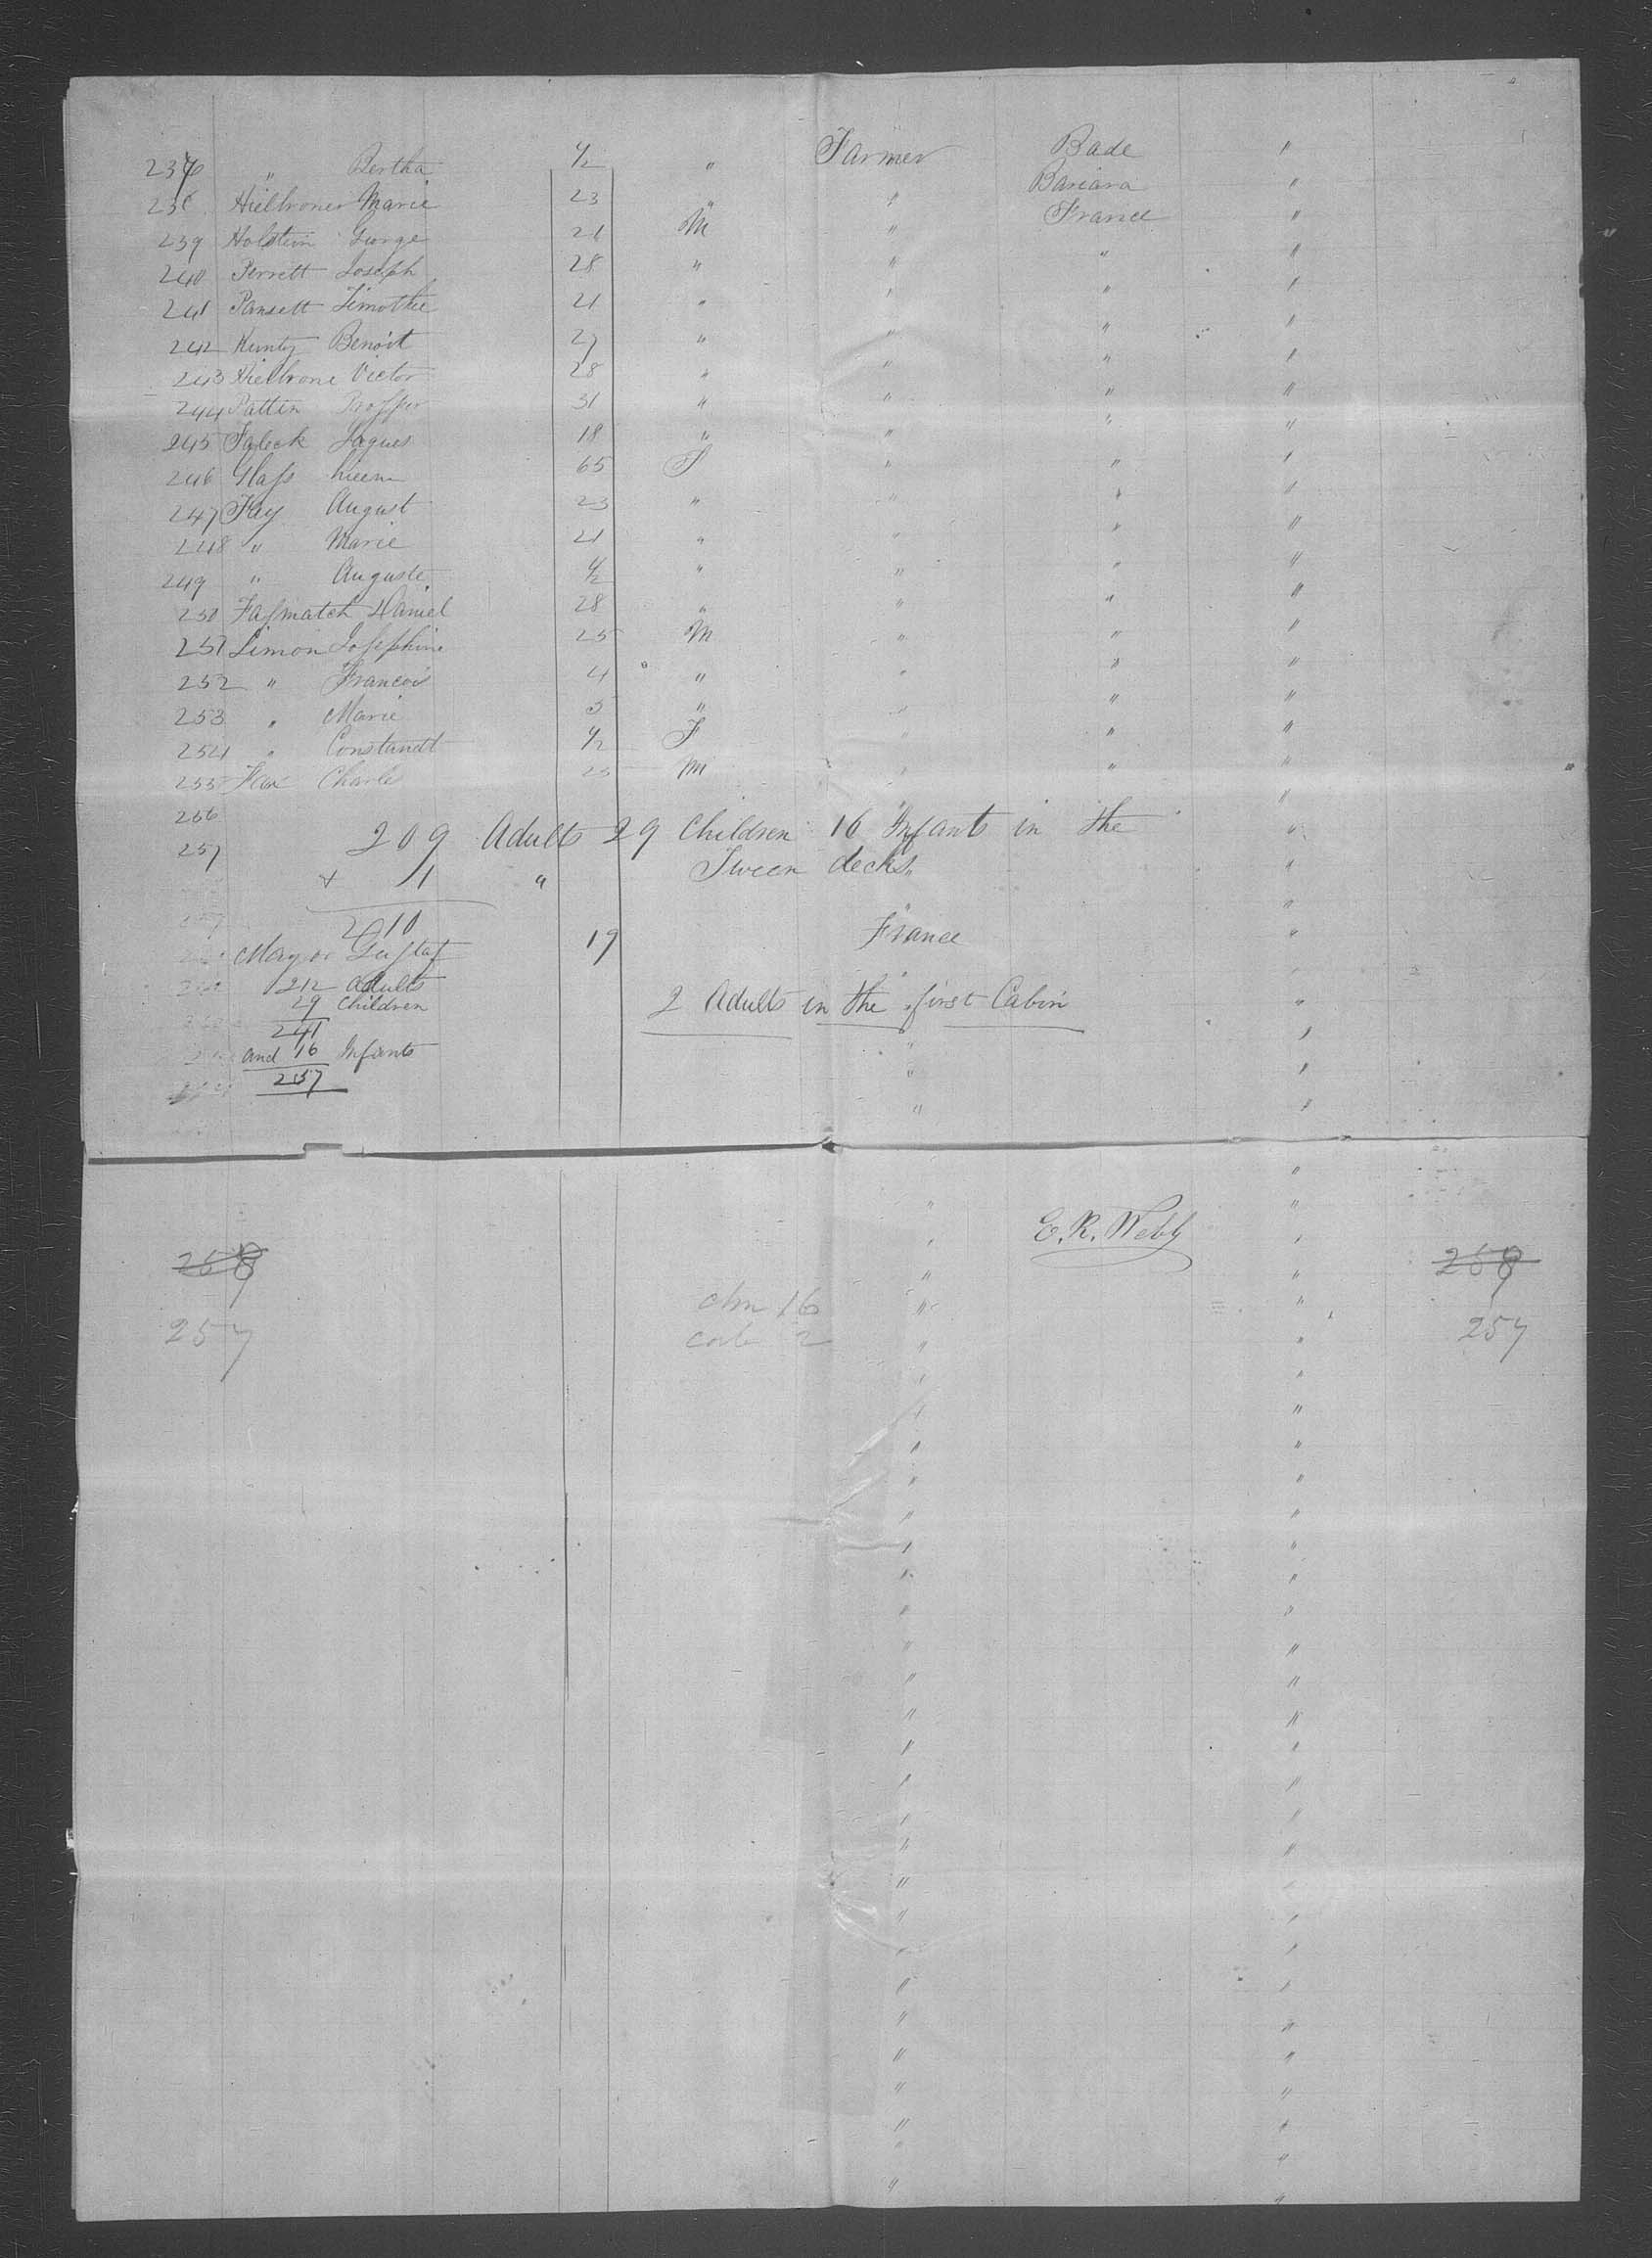 " Bertha 1/2 " Farmer Bade "
Hielbroner Marie 23 " " Baviara "
239 Holstein George 21 M " France "
240 Perrett Joseph 28 " " " "
241 Pansett Timothee 21 " " " "
242 Kuntz Benoit 27 " " " "
243 Hielbrone Victor 28 " " " "
244 Patten 31 " " " "
245 Faleck Jaques 18 " " " "
246 Glass 65 F " " "
247 Fay August 23 " " " "
248 " Marie 21 " " " "
249 " Auguste 1/2 " " " "
250 Daniel 28 " " " "
251 Simon Josephine 25 M " " "
252 " Francois 4 " " " "
253 " Marie 5 " " " "
254 " Constandt 1/2 F " " "
255 Charles 25 M " " "
256
257 209 Adults 29 Children 16 Infants in the
+ 1 " Tween decks
210
Gustaf 19 France "
212 Adults
29 Children 2 Adults in the first Cabin
241
and 16 Infants
257
E. R. Webb
257 2 257